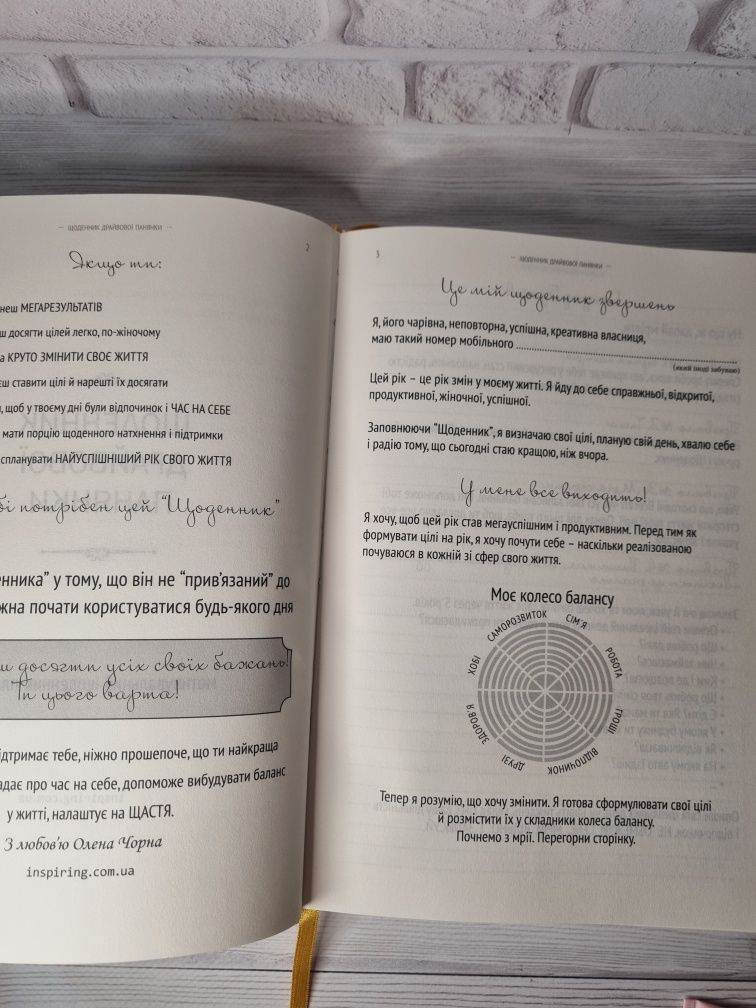 — ЩОДЕННИК ДРАЙВОВОЇ ПАНЯНКИ —
2
Якщо ти:
МЕГАРЕЗУЛЬТАТІВ
досягти цілей легко, по-жіночому
КРУТО ЗМІНИТИ СВОЄ ЖИТТЯ
ставити цілі й нарешті їх досягати
щоб у твоєму дні були відпочинок і ЧАС НА СЕБЕ
мати порцію щоденного натхнення і підтримки
спланувати НАЙУСПІШНІШИЙ РІК СВОГО ЖИТТЯ
потрібен цей "Щоденник"
у тому, що він не "прив'язаний" до
почати користуватися будь-якого дня
досягти усіх своїх бажань!
Ти цього варта!
тебе, ніжно прошепоче, що ти найкраща
про час на себе, допоможе вибудувати баланс
у житті, налаштує на ЩАСТЯ.
З любов'ю Олена Чорна
inspiring.com.ua
3
— ЩОДЕННИК ДРАЙВОВОЇ ПАНЯНКИ —
Це мій щоденник звершень
Я, його чарівна, неповторна, успішна, креативна власниця,
маю такий номер мобільного
(який іноді забуваю)
Цей рік – це рік змін у моєму житті. Я йду до себе справжньої, відкритої,
продуктивної, жіночної, успішної.
Заповнюючи "Щоденник", я визначаю свої цілі, планую свій день, хвалю себе
і радію тому, що сьогодні стаю кращою, ніж вчора.
У мене все виходить!
Я хочу, щоб цей рік став мегауспішним і продуктивним. Перед тим як
формувати цілі на рік, я хочу почути себе – наскільки реалізованою
почуваюся в кожній зі сфер свого життя.
Моє колесо балансу
САМОРОЗВИТОК
СІМ'Я
РОБОТА
ГРОШІ
ВІДПОЧИНОК
ДРУЗІ
ЗДОРОВ'Я
ХОБІ
Тепер я розумію, що хочу змінити. Я готова сформулювати свої цілі
й розмістити їх у складники колеса балансу.
Почнемо з мрії. Перегорни сторінку.